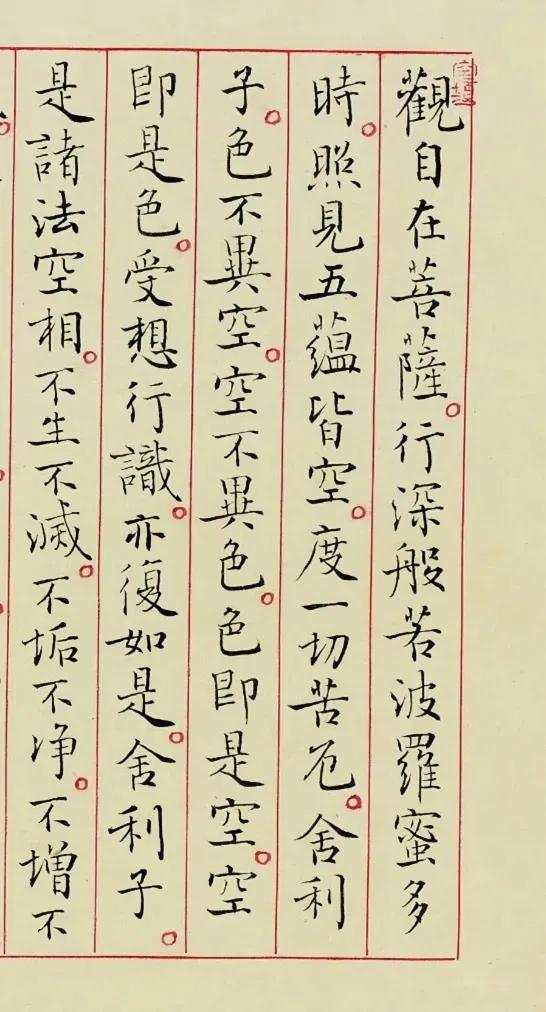 觀自在菩薩。行深般若波羅蜜多
時。照見五蘊皆空。度一切苦厄。舍利
子。色不異空。空不異色。色即是空。空
即是色。受想行識。亦復如是。舍利子。
是諸法空相。不生不滅。不垢不净。不增不